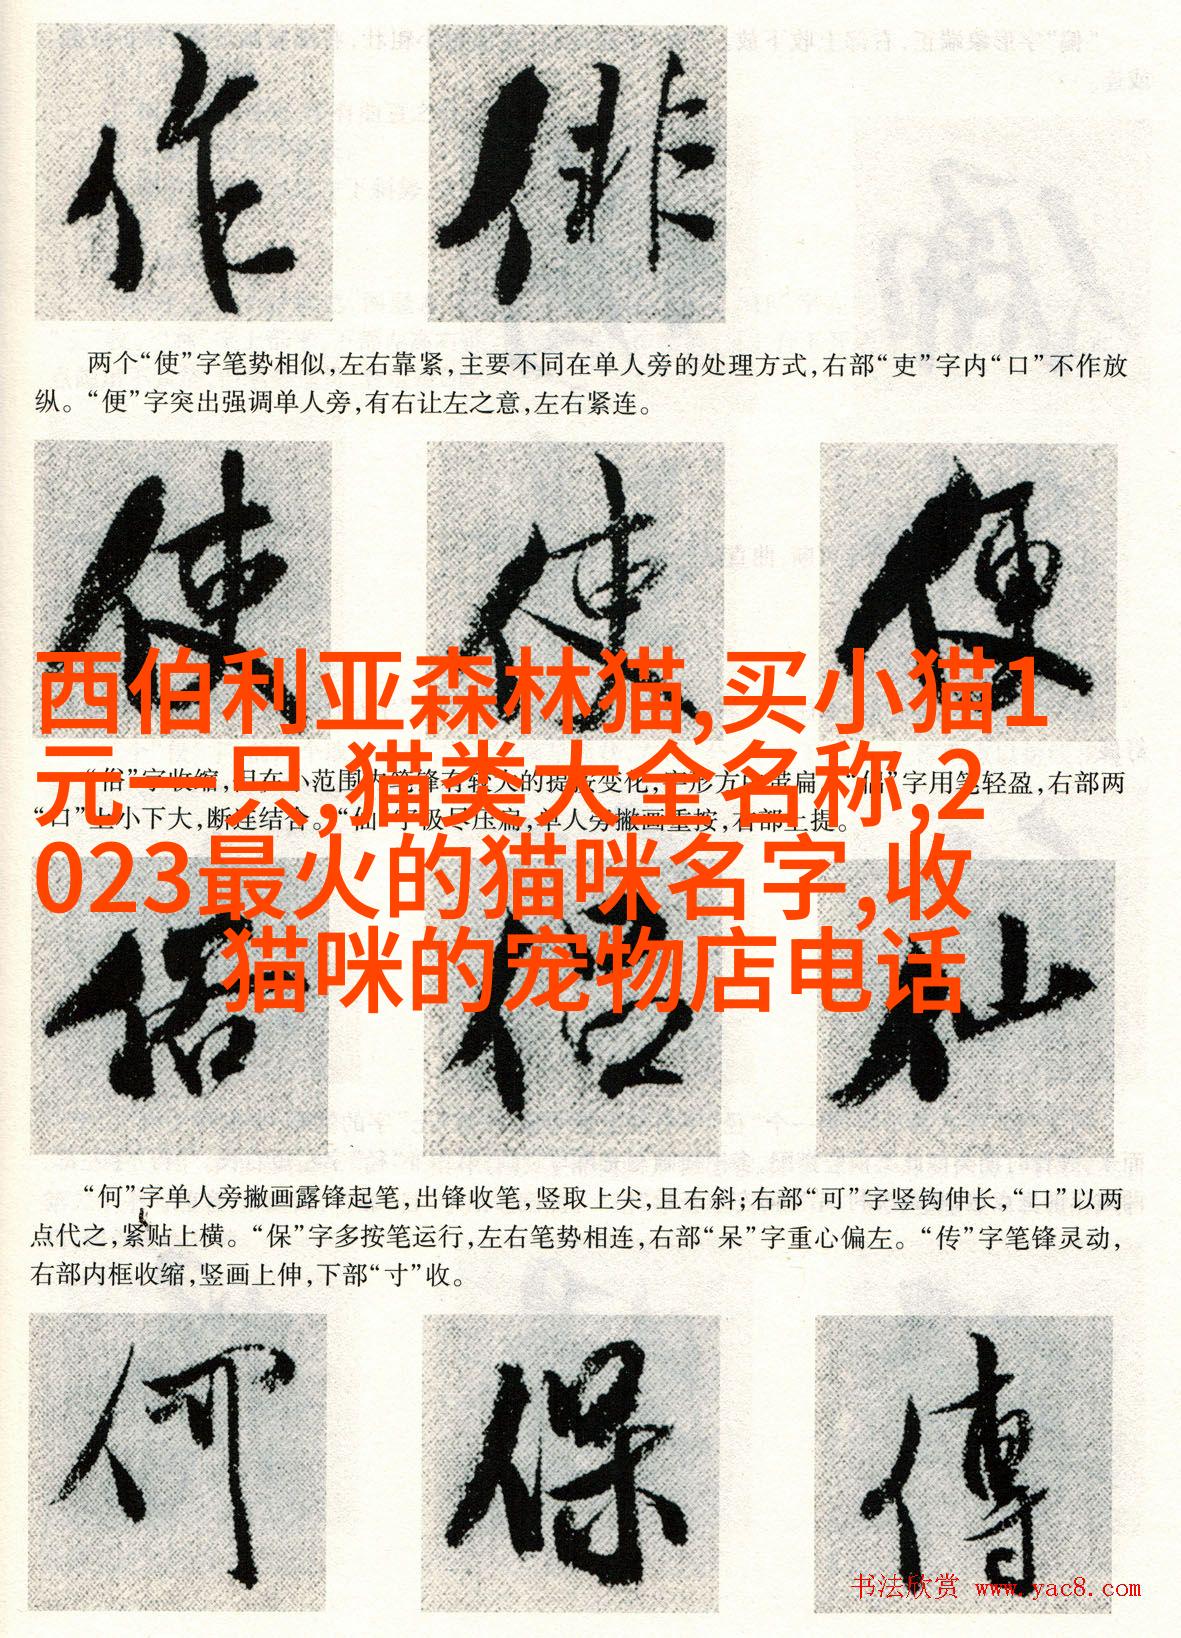 作 俳
两个“使”字笔势相似,左右靠紧,主要不同在单人旁的处理方式,右部“吏”字内“口”不作放
纵。“便”字突出强调单人旁,有右让左之意,左右紧连。
使 使 便
西伯利亚森林猫,买小猫1
元一只,猫类大全名称,2
023最火的猫咪名字,收
猫咪的宠物店电话
“俗”字收缩,但在小范围内笔锋有较大的提按变化,字形方 扁。“ ”字用笔轻盈,右部两
“口”上小下大,断连结合。“仙”字极尽压扁,单人旁撇画重按,右部上提。
俗 仙
“何”字单人旁撇画露锋起笔,出锋收笔,竖取上尖,且右斜;右部“可”字竖钩伸长,“口”以两
点代之,紧贴上横。“保”字多按笔运行,左右笔势相连,右部“呆”字重心偏左。“传”字笔锋灵动,
右部内框收缩,竖画上伸,下部“寸”收。
何 保 傳
书法欣赏 www.yac8.com